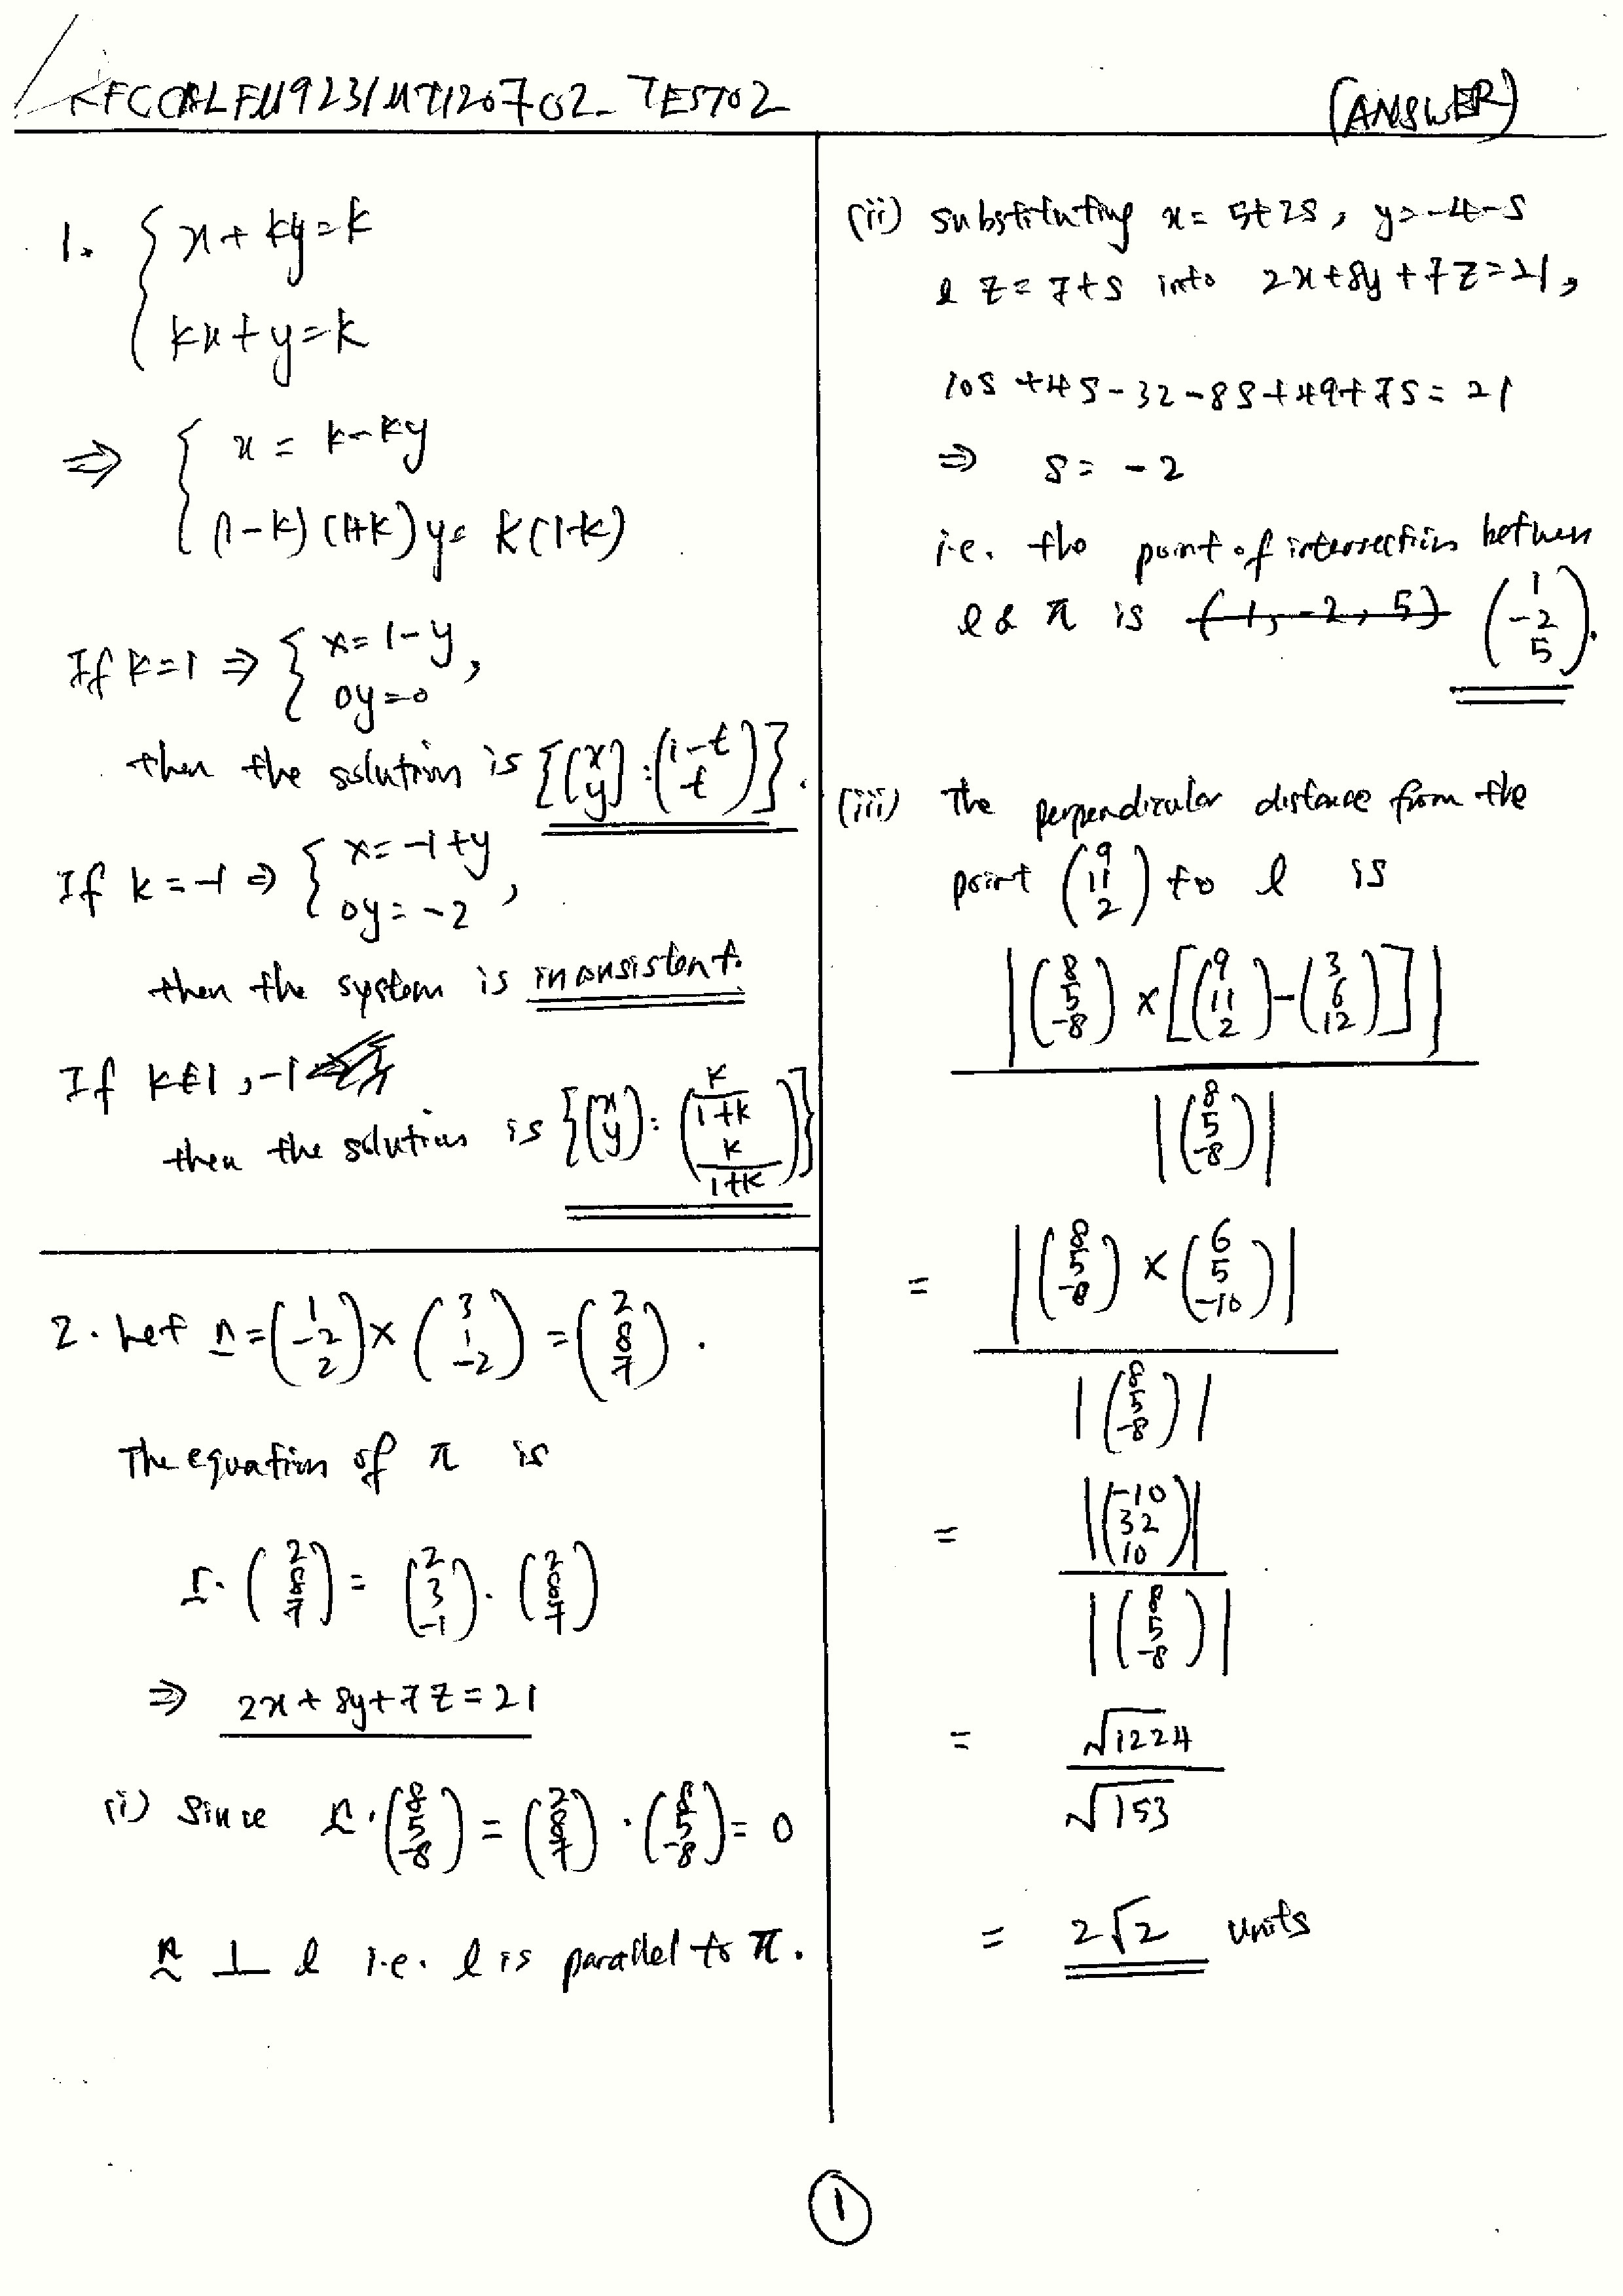 KFCCALFM923/MT120702_TEST02 (ANSWER)
1. { x + ky = k
kx + y = k
⇒ { x = k - ky
(1-k)(1+k)y = k(1-k)
If k=1 ⇒ { x = 1-y,
0y=0
then the solution is {(x y) : (1-t t)}.
If k=-1 ⇒ { x = -1+y,
0y = -2
then the system is inconsistent.
If k≠1, -1
then the solution is {(x y) : (k/1+k k/1+k)}
2. Let n = (1 -2 2) × (3 1 -2) = (2 8 7).
The equation of π is
r · (2 8 7) = (2 3 -1) · (2 8 7)
⇒ 2x + 8y + 7z = 21
(i) Since n · (8 5 -8) = (2 8 7) · (8 5 -8) = 0
n ⊥ l i.e. l is parallel to π.
(ii) substituting x = 5+2s, y = -4-s
& z = 7+s into 2x+8y+7z=21,
10s +4s-32-8s+49+7s = 21
⇒ s = -2
i.e. the point of intersection between
l & π is (1, -2, 5) (1 -2 5).
(iii) The perpendicular distance from the
point (9 11 2) to l is
|(8 5 -8) × [(9 11 2) - (3 6 12)]|
|(8 5 -8)|
= |(8 5 -8) × (6 5 -10)|
|(8 5 -8)|
= |(-10 32 10)|
|(8 5 -8)|
= √1224
√153
= 2√2 units
1